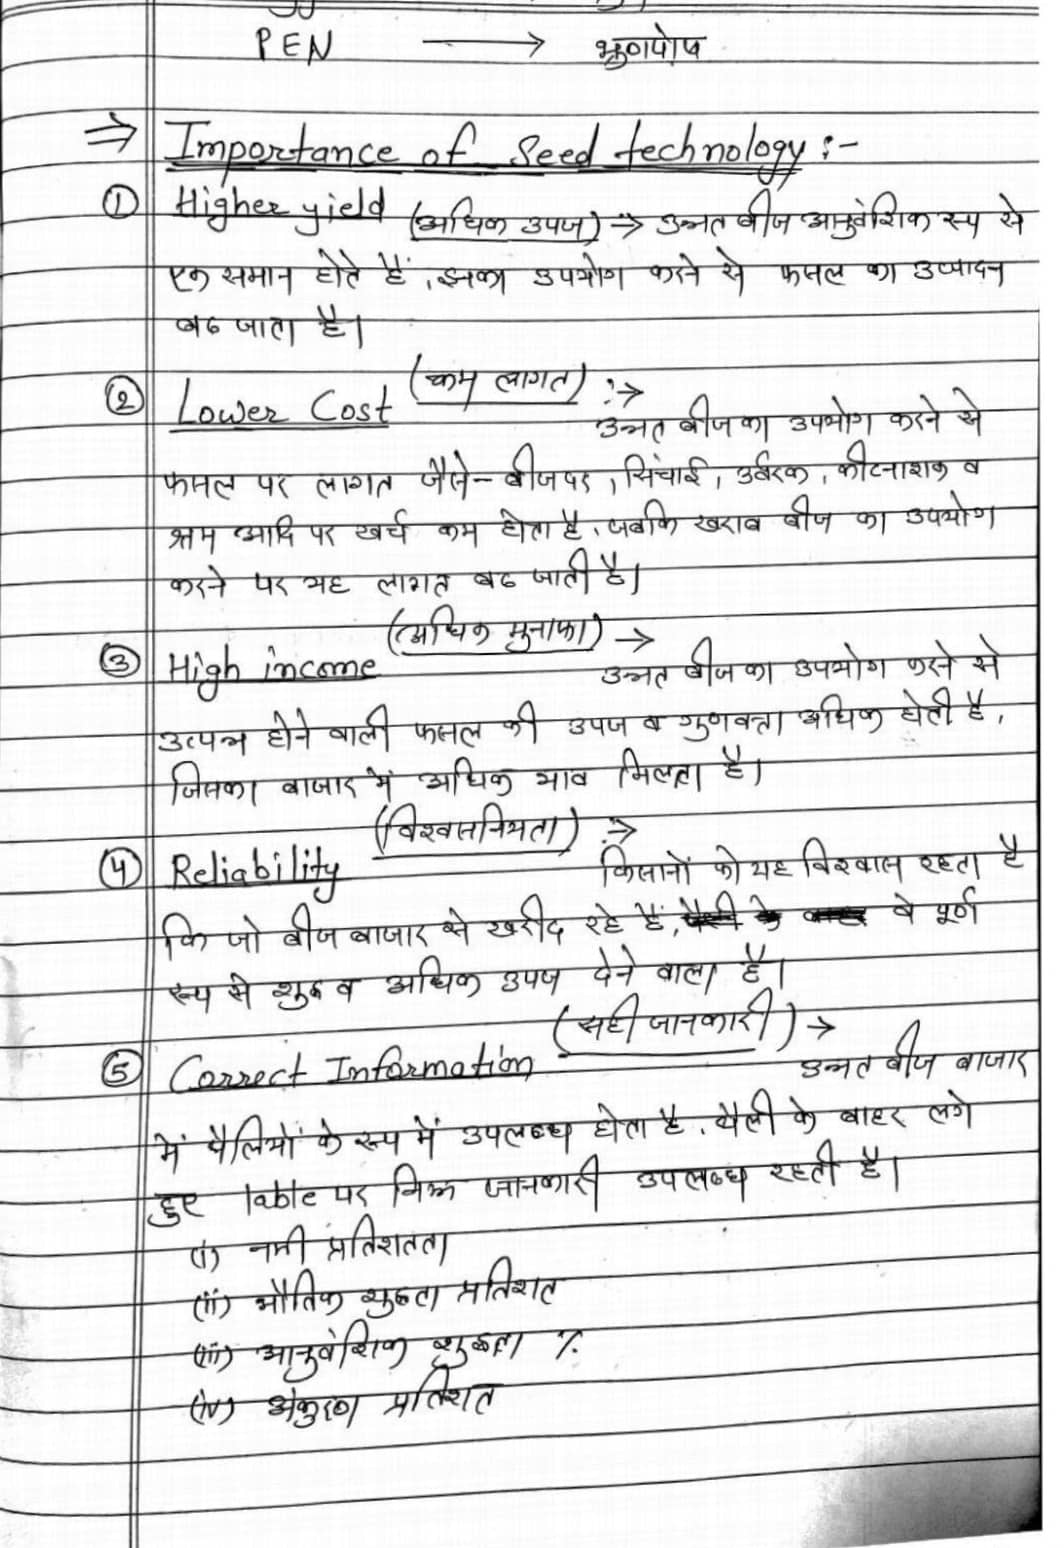 PEN ⟶ भ्रुणपोष
⇒ Importance of Seed technology :-
① Higher yield (अधिक उपज) → उन्नत बीज आनुवंशिक रूप से
एक समान होते हैं, इनका उपयोग करने से फसल का उत्पादन
बढ जाता है।
② Lower Cost (कम लागत) :→ उन्नत बीज का उपयोग करने से
फसल पर लागत जैसे- बीजदर, सिंचाई, उर्वरक, कीटनाशक व
श्रम आदि पर खर्च कम होता है, जबकि खराब बीज का उपयोग
करने पर यह लागत बढ जाती है।
③ High income (अधिक मुनाफा) → उन्नत बीज का उपयोग करने से
उत्पन्न होने वाली फसल की उपज व गुणवत्ता अधिक होती है,
जिसका बाजार में अधिक भाव मिलता है।
④ Reliability (विश्वसनियता) :→ किसानों को यह विश्वास रहता है
कि जो बीज बाजार से खरीद रहे हैं, वे पूर्ण
रूप से शुद्ध व अधिक उपज देने वाला है।
⑤ Correct Information (सही जानकारी) → उन्नत बीज बाजार
में थैलियों के रूप में उपलब्ध होता है, थैली के बाहर लगे
हुए lable पर निम्न जानकारी उपलब्ध रहती है।
(i) नमी प्रतिशतता
(ii) भौतिक शुद्धता प्रतिशत
(iii) आनुवंशिक शुद्धता %
(iv) अंकुरण प्रतिशत